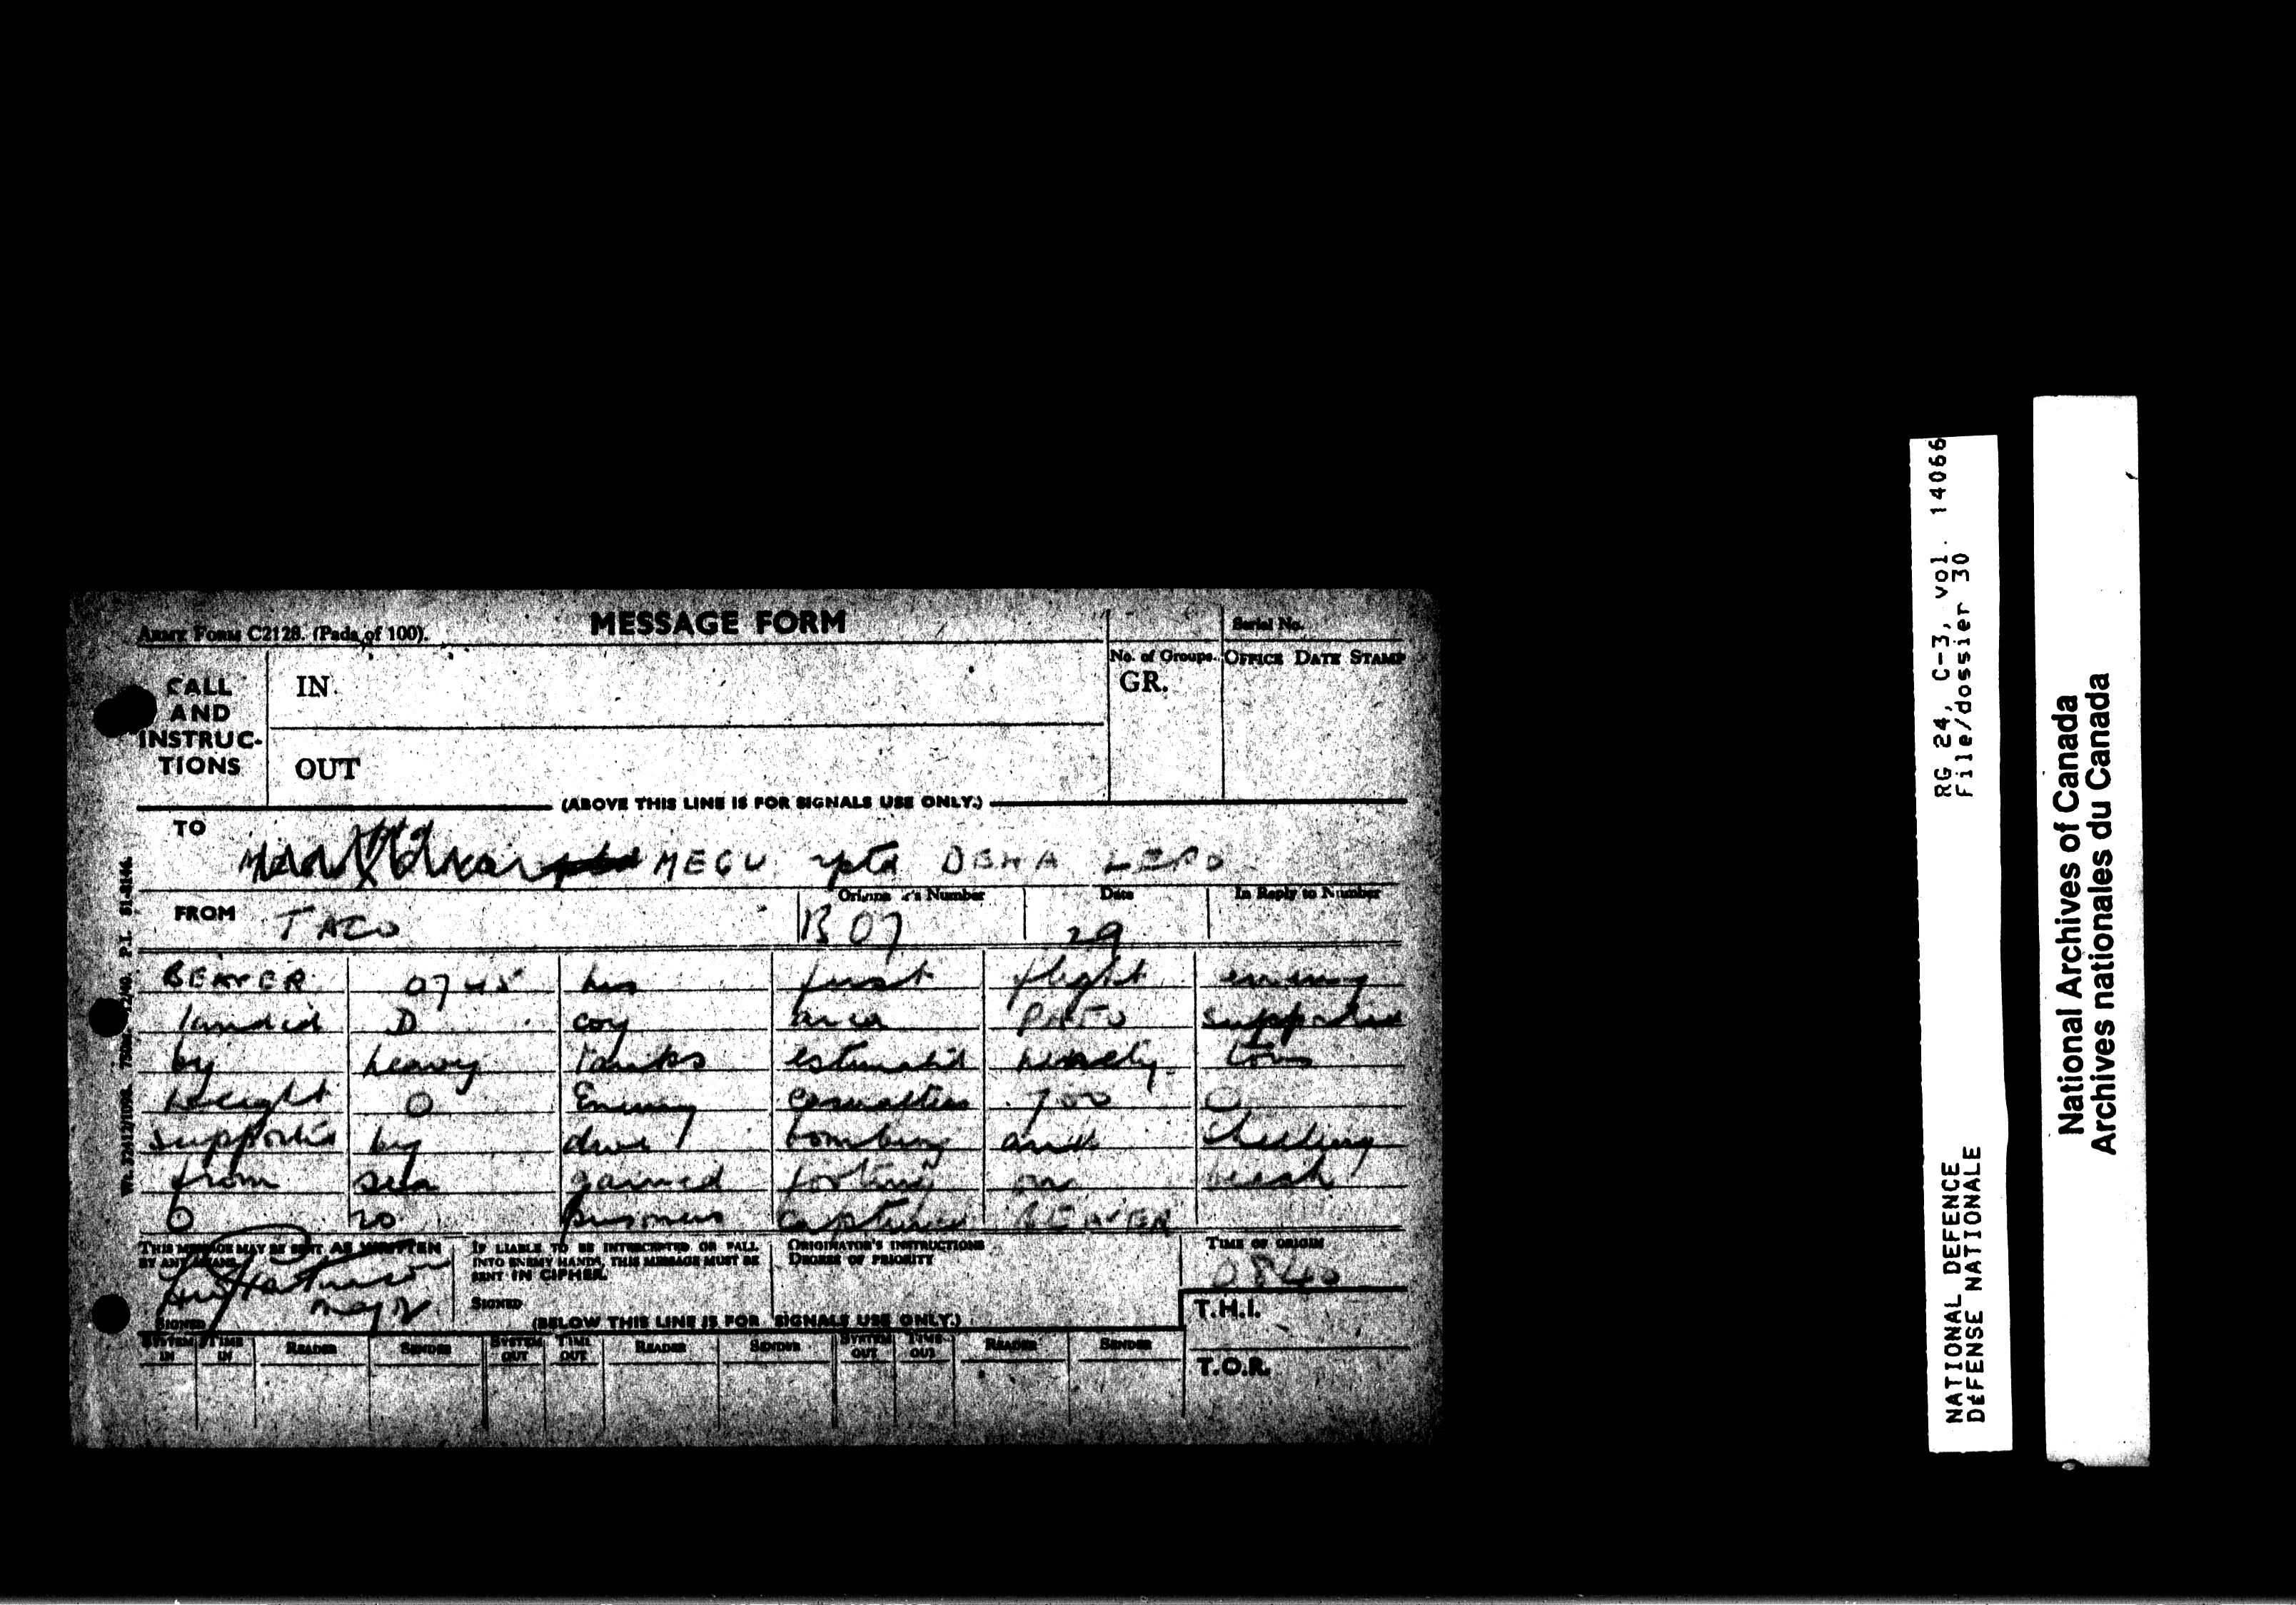 ARMY FORM C2128. (Pads of 100).
MESSAGE FORM
Serial No.
CALL AND INSTRUC-TIONS
IN
No. of Groups.
GR.
OFFICE DATE STAMP
OUT
(ABOVE THIS LINE IS FOR SIGNALS USE ONLY.)
TO
MEGU rptd DEHA LEPO
FROM TACO
Originator's Number
B07
Date
29
In Reply to Number
BEAVER 0745 hrs first flight enemy
landed D coy area PAFO supported
by heavy tanks estimated ninety tons
weight O Enemy casualties 700 O
supported by dive bombing and shelling
from sea gained footing on beach
O 20 prisoners captured BEAVER
THIS MESSAGE MAY BE SENT AS WRITTEN
BY ANY MEANS.
Major
SIGNED
IF LIABLE TO BE INTERCEPTED OR FALL
INTO ENEMY HANDS, THIS MESSAGE MUST BE
SENT IN CIPHER.
SIGNED
ORIGINATOR'S INSTRUCTIONS
DEGREE OF PRIORITY
TIME OF ORIGIN
0840
(BELOW THIS LINE IS FOR SIGNALS USE ONLY.)
T.H.I.
SYSTEM IN TIME IN READER SENDER SYSTEM OUT TIME OUT READER SENDER SYSTEM OUT TIME OUT READER SENDER
T.O.R.
NATIONAL DEFENCE RG 24, C-3, vol. 14066
DéFENSE NATIONALE File/dossier 30
National Archives of Canada
Archives nationales du Canada